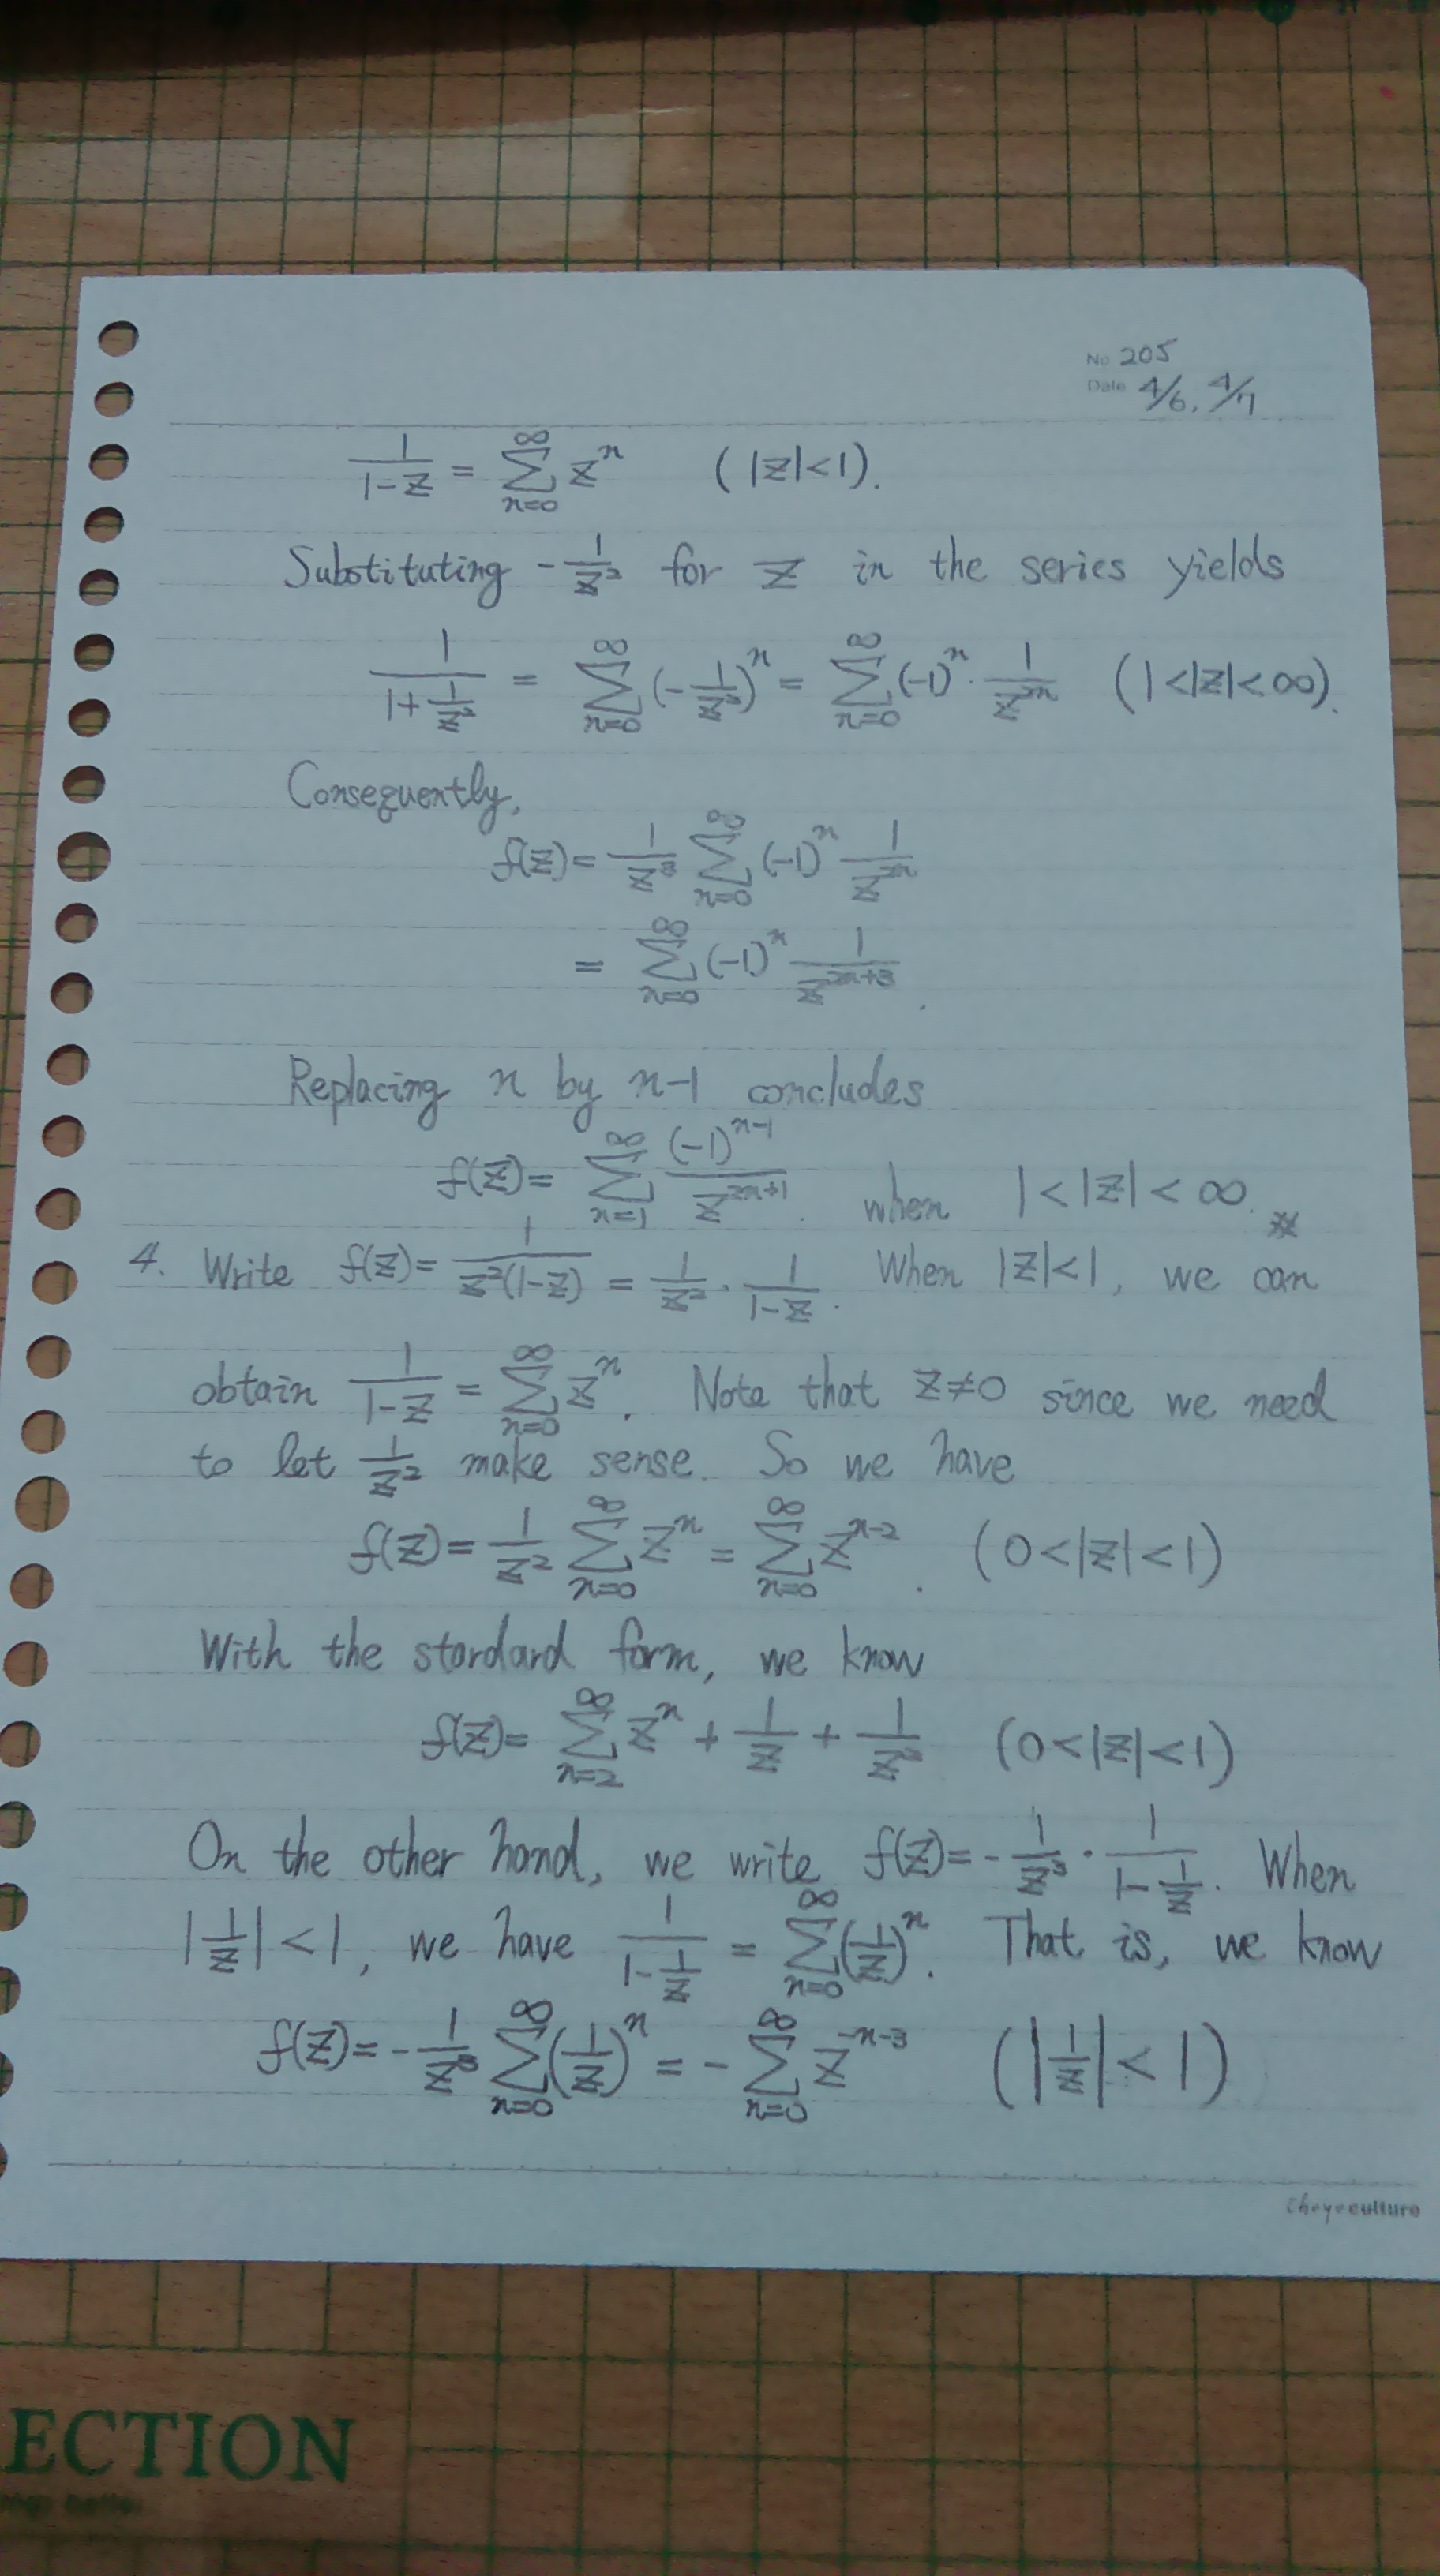 No 205
Date 4/6, 4/7
1/(1-z) = ∑_{n=0}^{∞} z^n (|z|<1).
Substituting -1/z² for z in the series yields
1/(1+1/z²) = ∑_{n=0}^{∞} (-1/z²)^n = ∑_{n=0}^{∞} (-1)^n · 1/z^{2n} (1<|z|<∞).
Consequently,
f(z) = 1/z³ ∑_{n=0}^{∞} (-1)^n 1/z^{2n}
= ∑_{n=0}^{∞} (-1)^n 1/z^{2n+3}.
Replacing n by n-1 concludes
f(z) = ∑_{n=1}^{∞} (-1)^{n-1}/z^{2n+1}. when 1<|z|<∞.
4. Write f(z) = 1/(z²(1-z)) = 1/z² · 1/(1-z). When |z|<1, we can
obtain 1/(1-z) = ∑_{n=0}^{∞} z^n. Note that z≠0 since we need
to let 1/z² make sense. So we have
f(z) = 1/z² ∑_{n=0}^{∞} z^n = ∑_{n=0}^{∞} z^{n-2}. (0<|z|<1)
With the stardard form, we know
f(z) = ∑_{n=2}^{∞} z^n + 1/z + 1/z² (0<|z|<1)
On the other hand, we write f(z) = -1/z³ · 1/(1-1/z). When
|1/z|<1, we have 1/(1-1/z) = ∑_{n=0}^{∞} (1/z)^n. That is, we know
f(z) = -1/z³ ∑_{n=0}^{∞} (1/z)^n = -∑_{n=0}^{∞} z^{-n-3} (|1/z|<1)
ECTION